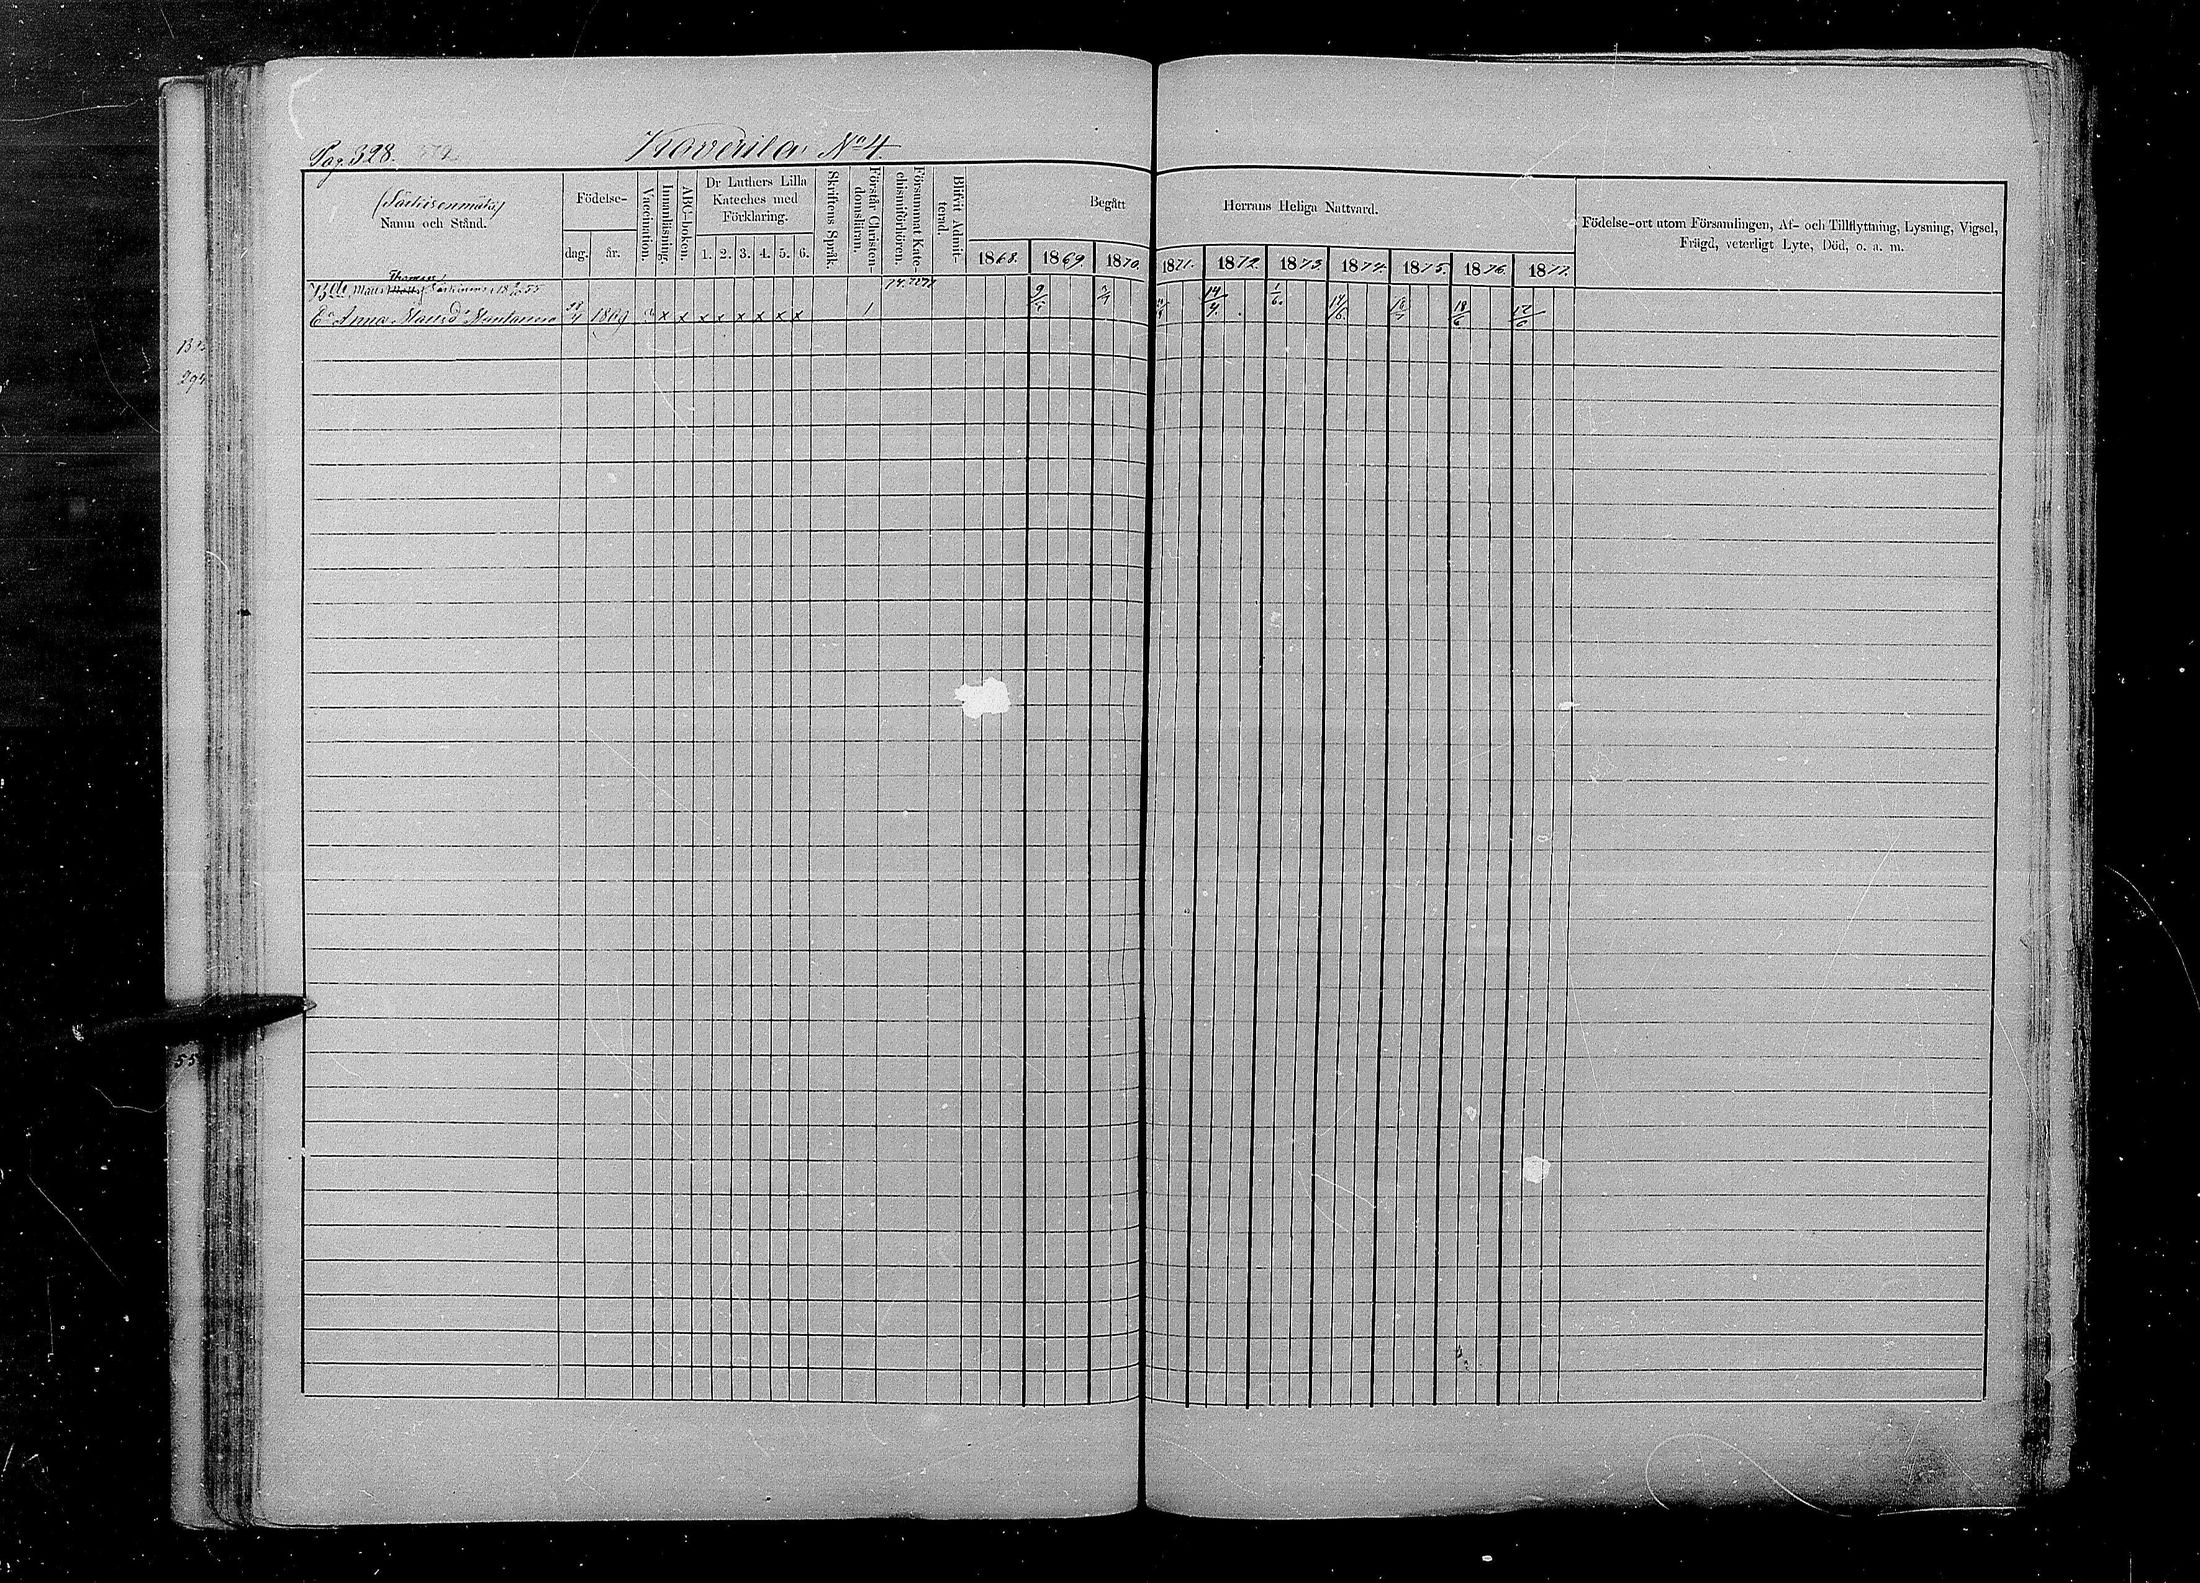 Pag. 328.
Kaverila N:o 4.
(Särkisenmäki)
Namn och Stånd.
Födelse-
dag. år.
Vaccination.
Innanläsning.
ABC-boken.
Dr Luthers Lilla Kateches med Förklaring.
1. 2. 3. 4. 5. 6.
Skriftens Språk.
Förstår Christendomsläran.
Försummat Katechismiförhören.
Blifvit Admitterad.
Begått Herrans Heliga Nattvard.
1868. 1869. 1870. 1871. 1872. 1873. 1874. 1875. 1876. 1877.
Födelse-ort utom Församlingen, Af- och Tillflyttning, Lysning, Vigsel,
Frägd, veterligt Lyte, Död, o. a. m.
Matts 55
Ea Anna Mattsdr x x x x x x x x 1 14/4 1/6 14/6 18/6 12/6
294
55